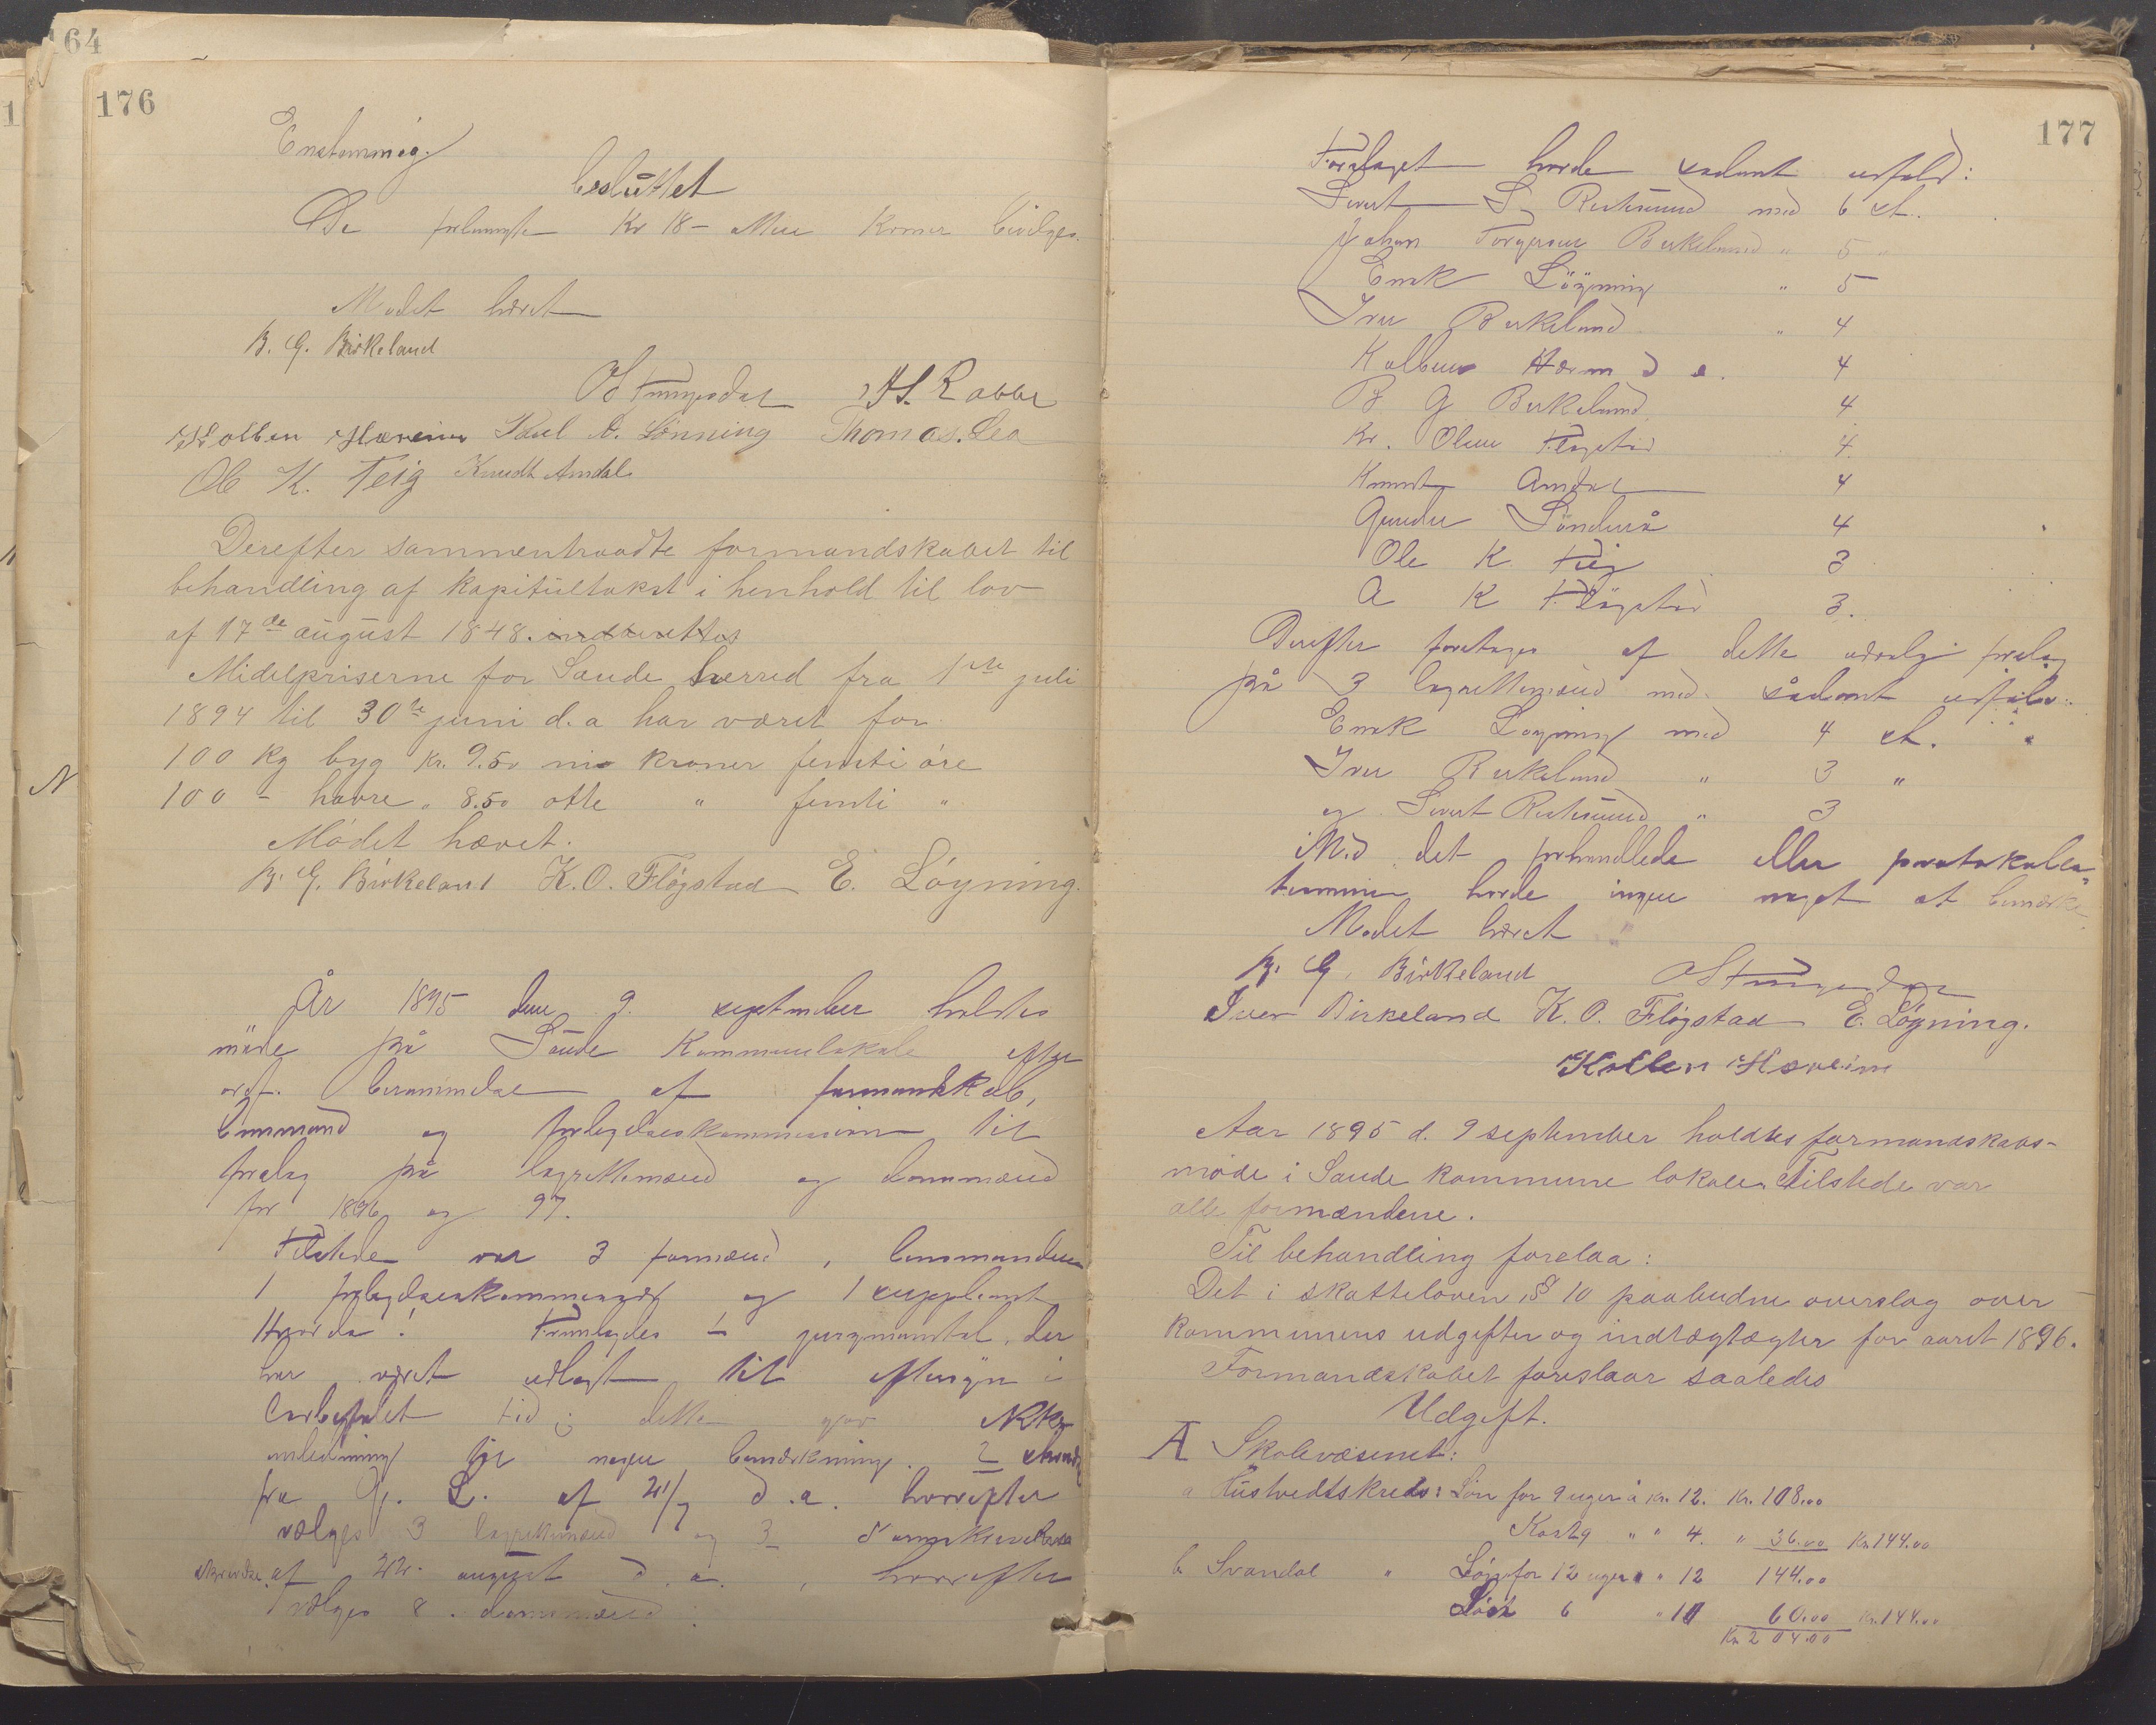 164
176
Enstemmig
besluttet
De forlangte Kr 18 – atten Kroner bevilges.
Mødet hævet
B. G. Birkeland
H. S. Rabbe
Kolben Hæreim Poul A. Lønning Thomas Lea
Ole K. Teig Knudt Amdal
Derefter sammentraadte formandskabet til
behandling af kapitültakst i henhold til lov
af 17de august 1848. indberettes
Midelpriserne for Saude herred fra 1ste juli
1894 til 30te juni d. a har været for
100 kg byg kr. 9.50 ni kroner femti øre
100 – havre „ 8.50 otte " femti "
Mødet hævet.
B. G. Birkeland K. O. Fløgstad E. Løyning.
År 1895 den 9. september holdtes
møde på Saude Kommunelokale efter
ordf. berammelse af formandskab,
lensmand og forligelseskommission til
forslag på lagrettemænd og domsmænd
for 1896 og 97.
Tilstede var 3 formænd, lensmanden
1 forligelseskommissær og 1 suppleant
Hvorda! Fremlagdes 1 jurymantal, der
har været udlagt til eftersyn i
lovbefalet tid; dette gav ikke
anledning til nogen bemærkning. 2 skrivelse
fra af 21/7 d. a. hvorefter
vælges 3 lagrettemænd og 3
skrivelse af 22. august d. a., hvorefter
vælges 8 domsmænd:
177
Forslaget havde sadant udfald:
Sivert S. Risteiund med 6 st.
Johan Torgersen Birkeland " 5 "
Enok Löyning " 5
Iver Birkeland " 4
Kolben Hærem 4
B G Birkeland 4
Kr. Olsen Fløgstad 4
Knudt Amdal 4
Gunder Sønderå 4
Ole K Teig 3
A K Fløgstad 3.
Derefter foretages af dette udvalg forslag
på 3 lagrettemænd med sådant udfald:
Enok Løyning med 4 st.
Iver Birkeland " 3 "
og Sivert Risteiund " 3
Mod det forhandlede eller protokolla-
tionen havde ingen noget at bemærke
Mødet hævet
B. G. Birkeland
Iver Birkeland K. O. Fløgstad E. Løyning.
Kolben Hæreim
Aar 1895 d. 9 september holdtes formandskabs-
møde i Saude kommune lokale. Tilstede var
alle formændene.
Til behandling forelaa:
Det i skatteloven § 10 paabudne overslag over
kommunens udgifter og indtægtægter for aaret 1896.
Formandskabet foreslaar saaledes
Udgift.
A Skolevæsenet:
a Hüstvedtskreds: Løn for 9 uger à kr. 12. Kr. 108.00
Kost 9 " " 4. " 36.00 Kr. 144.00
b Svandal " Løn for 12 uger " 12 144.00
6 " 10 60.00 Kr. 144.00
Kr 204.00